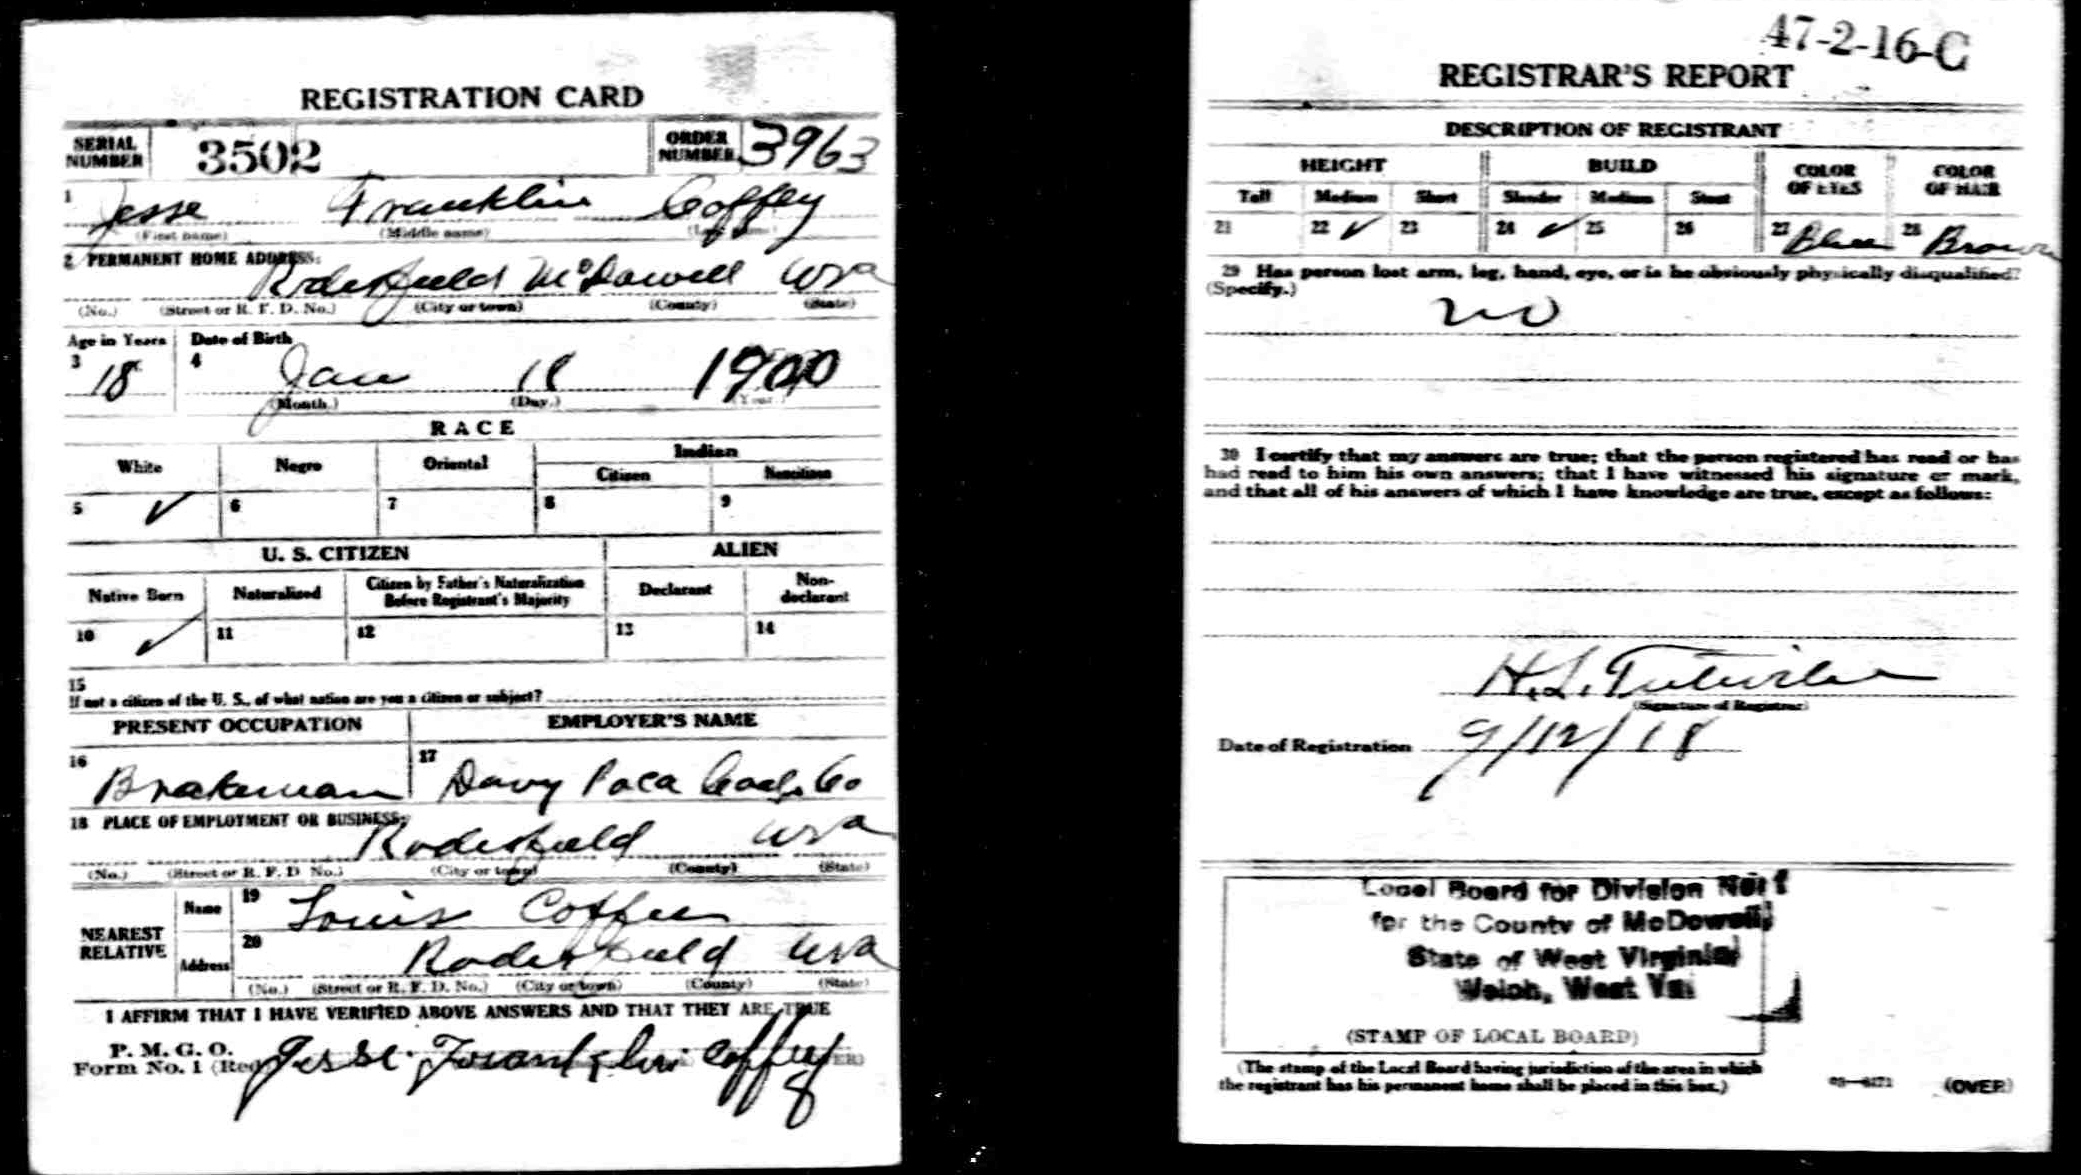 REGISTRATION CARD
SERIAL NUMBER 3502 ORDER NUMBER 3963
1 Jesse Franklin Coffey
(First name) (Middle name) (Last name)
2 PERMANENT HOME ADDRESS:
Roderfield McDowell WVa
(No.) (Street or R. F. D. No.) (City or town) (County) (State)
Age in Years Date of Birth
3 18 4 Jan 18 1900
(Month.) (Day.) (Year.)
RACE
White Negro Oriental Indian
Citizen Noncitizen
5 ✓ 6 7 8 9
U. S. CITIZEN ALIEN
Native Born Naturalized Citizen by Father's Naturalization Before Registrant's Majority Declarant Non-declarant
10 ✓ 11 12 13 14
15
If not a citizen of the U. S., of what nation are you a citizen or subject?
PRESENT OCCUPATION EMPLOYER'S NAME
16 Brakeman 17 Davy Poca Coal Co
18 PLACE OF EMPLOYMENT OR BUSINESS:
Roderfield WVa
(No.) (Street or R. F. D. No.) (City or town) (County) (State)
NEAREST RELATIVE
Name 19 Louis Coffey
Address 20 Roderfield WVa
(No.) (Street or R. F. D. No.) (City or town) (County) (State)
I AFFIRM THAT I HAVE VERIFIED ABOVE ANSWERS AND THAT THEY ARE TRUE
P. M. G. O.
Form No. 1 (Red) Jesse Franklin Coffey
47-2-16-C
REGISTRAR'S REPORT
DESCRIPTION OF REGISTRANT
HEIGHT BUILD COLOR OF EYES COLOR OF HAIR
Tall Medium Short Slender Medium Stout
21 22 ✓ 23 24 ✓ 25 26 27 Blue 28 Brown
29 Has person lost arm, leg, hand, eye, or is he obviously physically disqualified?
(Specify.)
no
30 I certify that my answers are true; that the person registered has read or has
had read to him his own answers; that I have witnessed his signature or mark,
and that all of his answers of which I have knowledge are true, except as follows:
H. L. Tutwiler
(Signature of Registrar)
Date of Registration 9/12/18
Local Board for Division No. 1
for the County of McDowell,
State of West Virginia,
Welch, West Va.
(STAMP OF LOCAL BOARD)
(The stamp of the Local Board having jurisdiction of the area in which
the registrant has his permanent home shall be placed in this box.)
(OVER)